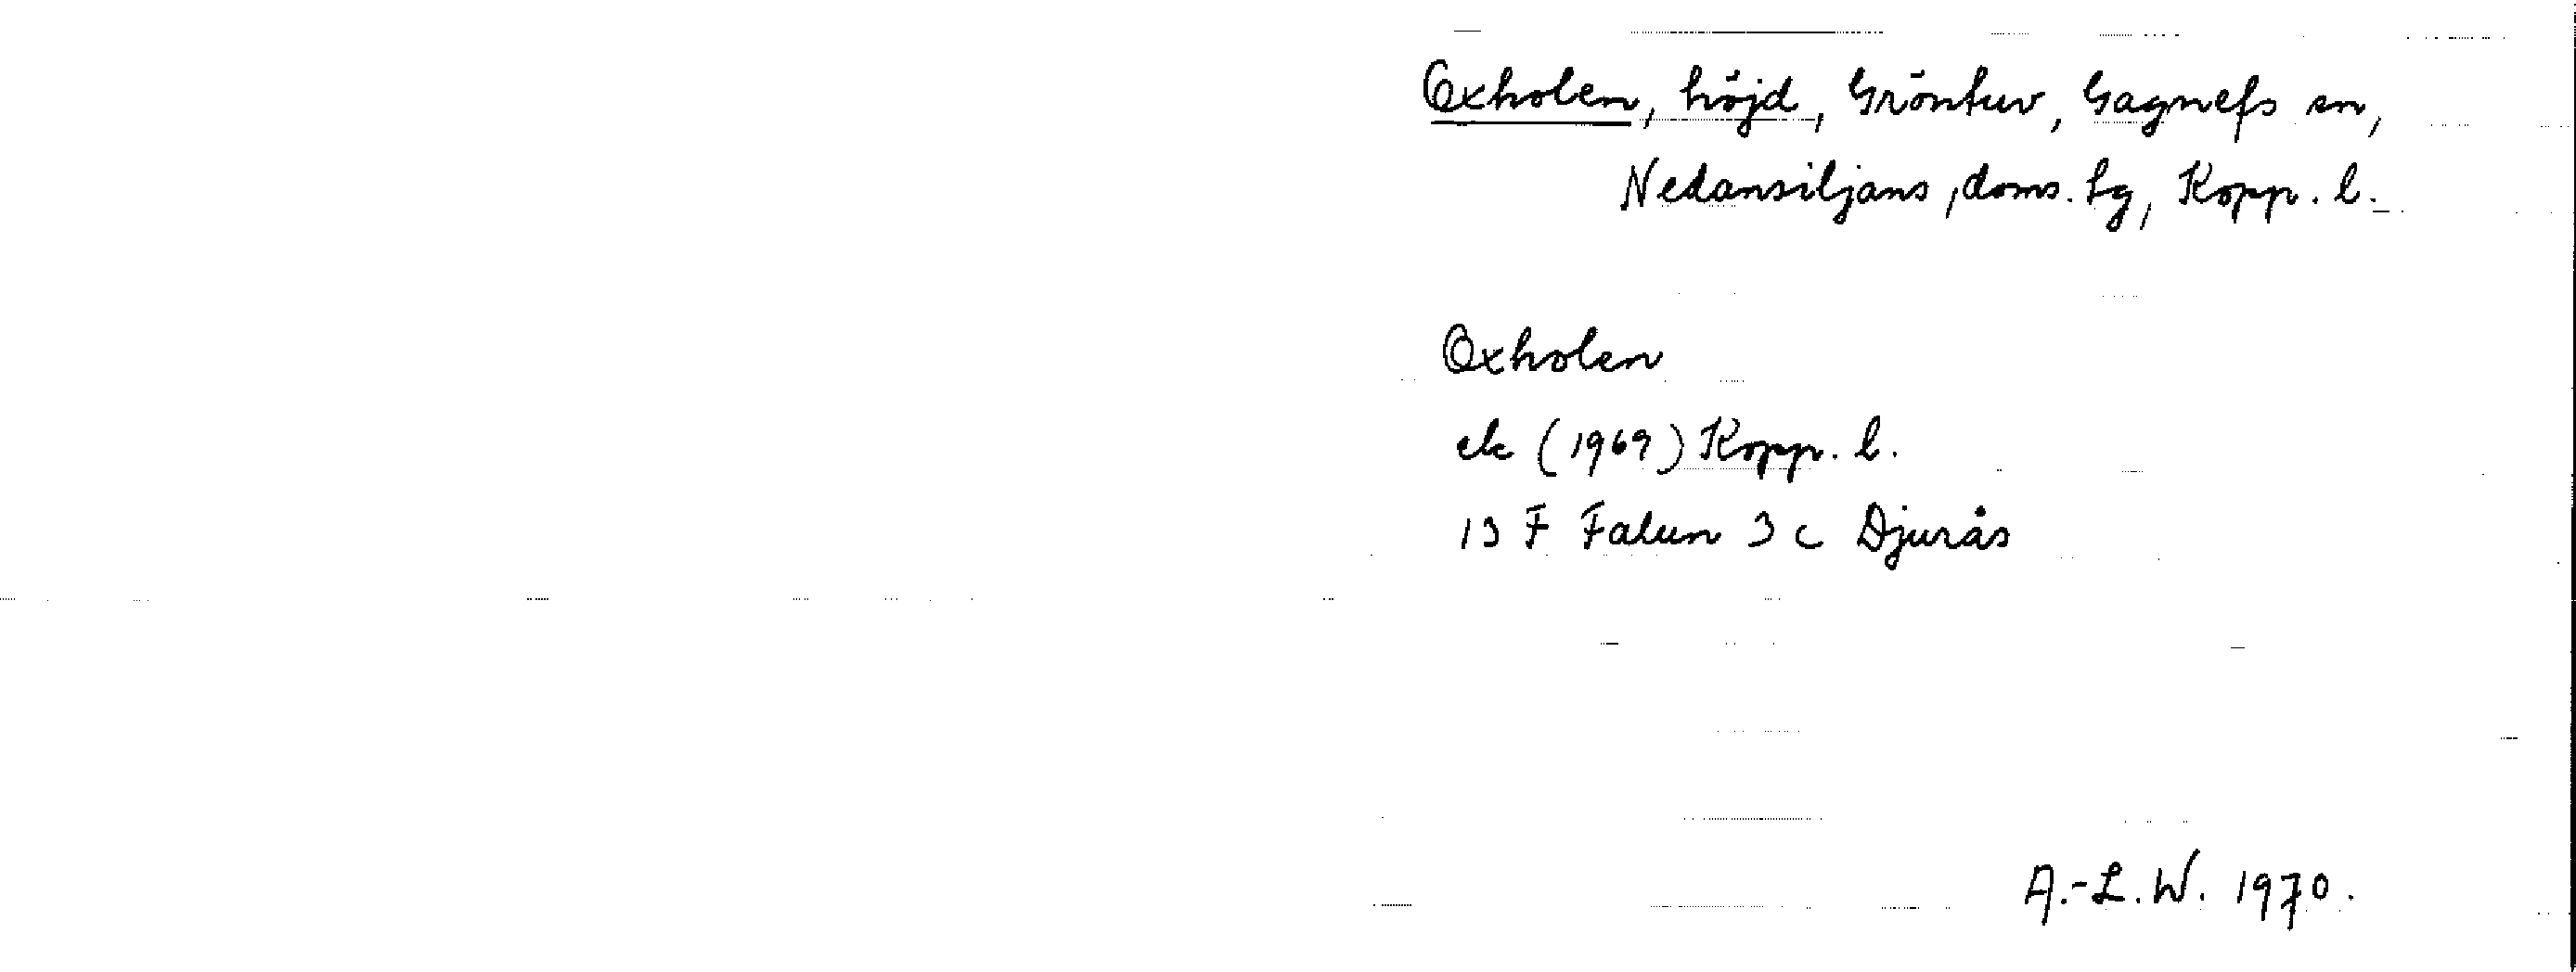 Oxholen, höjd, Gröntuv, Gagnefs sn,
Nedansiljans, doms. tg, Kopp. l.
Oxholen
ek (1969) Kopp. l.
13 F Falun 3 c Djurås
A.-L. W. 1970.